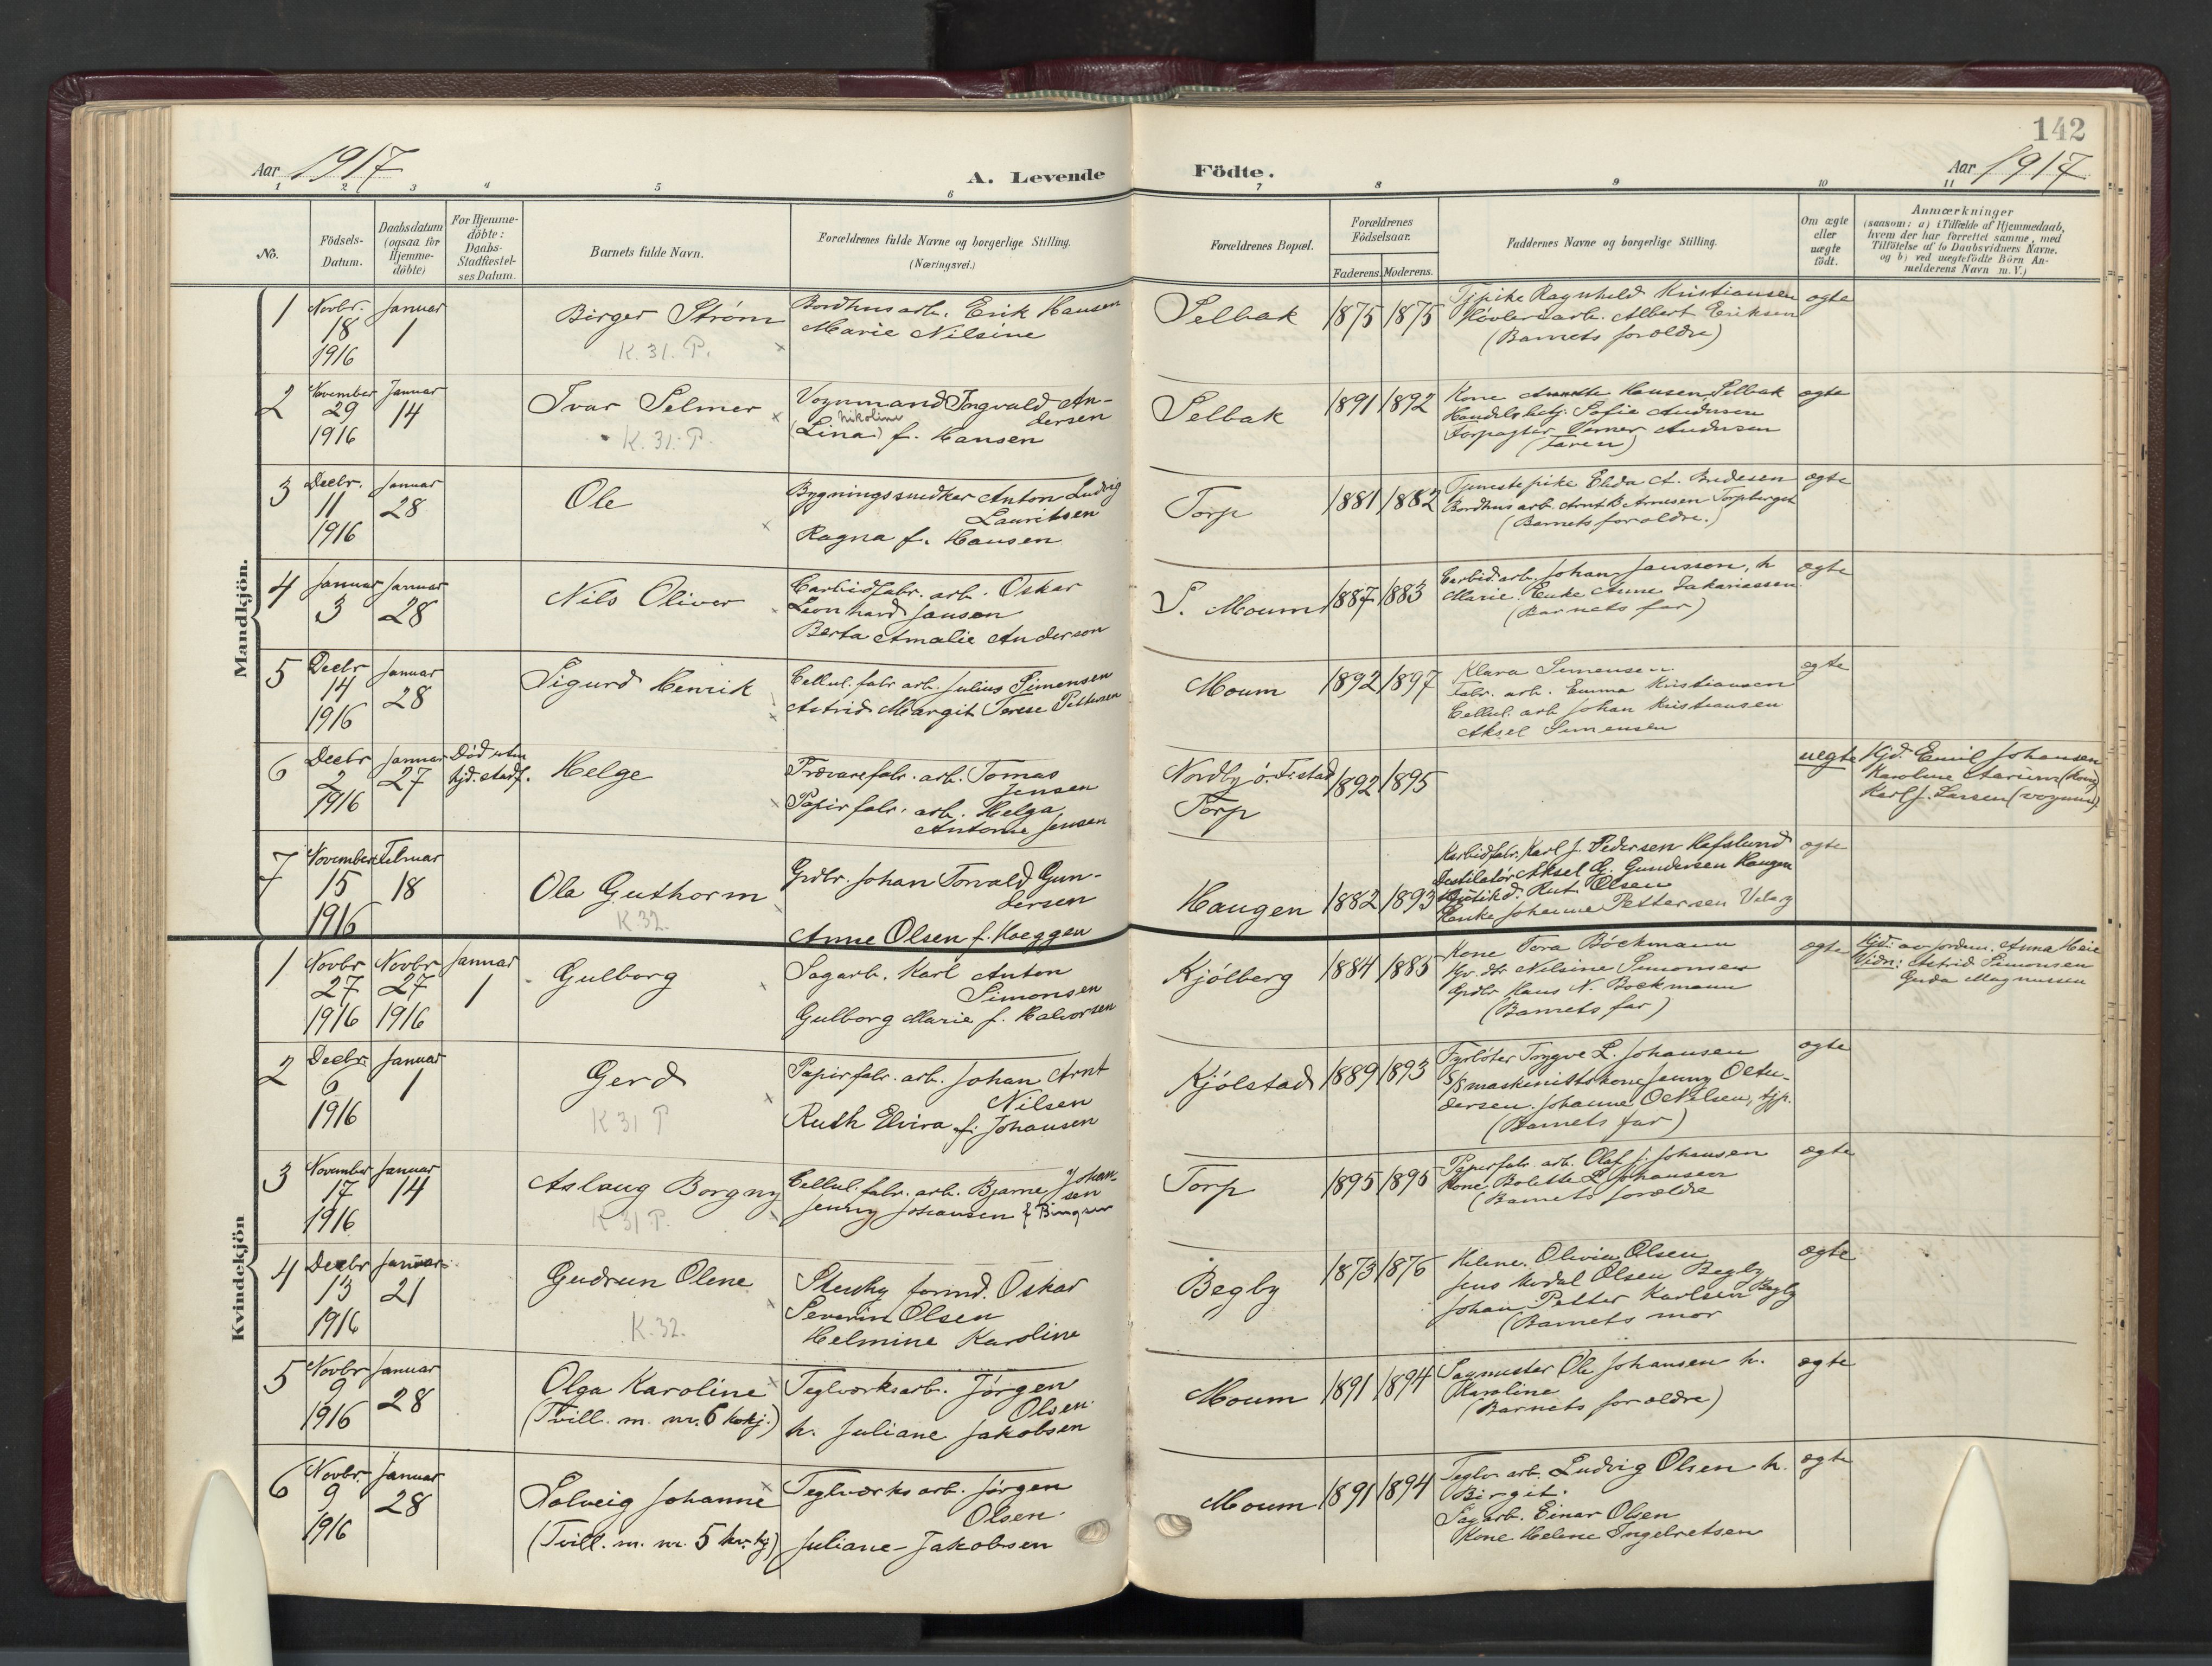 142
Aar 1917
A. Levende Födte.
Aar 1917
1 2 3 4 5 6 7 8 9 10 11
No.
Födsels-
Datum.
Daabsdatum
(ogsaa för
Hjemme-
döbte)
For Hjemme-
döbte:
Daabs-
Stadfæstel-
ses Datum.
Barnets fulde Navn.
Forældrenes fulde Navne og borgerlige Stilling.
(Næringsvei.)
Forældrenes Bopæl.
Forældrenes
Födselsaar.
Faderens. Moderens.
Faddernes Navne og borgerlige Stilling.
Om ægte
eller
uægte
födt.
Anmærkninger
(saasom: a) i Tilfælde af Hjemmedaab,
hvem der har forrettet samme, med
Tilföielse af to Daabsvidners Navne.
og b) ved uægtefödte Börn An-
melderens Navn m. V.)
Mandkjön.
1
Novbr.
18
1916
Januar
1
Birger Strøm
K. 31. P.
Bordhusarb. Erik Hansen
Marie Nilsine
Selbak
1875 1875
Tjpike Ragnhild Kristiansen
Høvleriarb. Albert Eriksen
(Barnets forældre)
ægte
2
November
29
1916
Januar
14
Ivar Selmer
K. 31. P.
Vognmand Ingvald An-
dersen
Nikoline
(Lina) f. Hansen
Selbak
1891 1892
Kone Annette Hansen, Selbak
Handelsbetj. Sofie Andersen
Forpagter Verner Andersen
(Faren)
ægte
3
Decbr.
11
1916
Januar
28
Ole
Bygningssnedker Anton Ludvig
Lauritsen
Ragna f. Hansen
Torp
1881 1882
Tjenestepike Elida A. Bredesen
Bordhusarb. Arnt B. Arnesen Torpberget
(Barnets forældre.)
ægte
4
Januar
3
Januar
28
Nils Oliver
Carbidfabr. arb. Oskar
Leonhard Janson
Berta Amalie Anderson
S. Moum
1887 1883
Carbid.arb. Johan Jansson, h
Marie. Enke Anne Zakariassen
(Barnets far)
ægte
5
Decbr
14
1916
Januar
28
Sigurd Henrik
Cellul. fabr. arb. Julius Simensen
Astrid Margit Terese Pettersen
Moum
1892 1897
Klara Simensen
Fabr. arb. Emma Kristiansen
Cellul. arb Johan Kristiansen
Aksel Simensen
ægte
6
Decbr
2
1916
Januar
27
Død uten
hjd. stadf.
Helge
Trævarefabr. arb. Tomas
Jensen
Papirfabr. arb. Helga
Antonie Jensen
Nordby ö. Fistad
Torp
1892 1895
uegte
Hjd. Emil Johansen
Karoline Aarum (Kone)
Karl J. Larsen (vognm.)
7
November
15
1916
Februar
18
Ola Guthorm
K. 32.
Grdbr. Johan Torvald Gun-
dersen
Anne Olsen f. Hoeggen
Haugen
1882 1893
Karbidfabr. Karl J. Pedersen Hafslund
Destilatør Aksel G. Gundersen Haugen
Butikd. Rut Olsen
Enke Johanne Pettersen Visterg
ægte
Kvindekjön
1
Novbr
27
1916
Novbr
27
1916
Januar
1
Gulborg
Sagarb. Karl Anton
Simonsen
Gulborg Marie f. Halvorsen
Kjölberg
1884 1885
Kone Tora Böckmann
Gv. dtr Nilsine Simonsen
Grdbr Hans N. Bockmann
(Barnets far)
ægte
Hjd: av jordm. Anna Heie
Vidn: Astrid Simonsen
Guda Magnussen
2
Decbr.
6
1916
Januar
1
Gerd
K 31 P
Papirfabr. arb. Johan Arnt
Nilsen
Ruth Elvira f. Johansen
Kjölstad
1889 1893
Fyrböter Trygve L. Johansen
S/S maskinistskone Jenny Osten-
dersen. Johanne O Nilsen, tjp.
(Barnets far)
ægte
3
November
17
1916
Januar
14
Aslaug Borgny
K 31 P.
Cellul. fabr. arb. Bjarne Johan-
sen
Jenny Johansen f. Bingen
Torp
1895 1895
Papirfabr. arb. Olaf J. Johansen
Kone Bolette L Johansen
(Barnets forældre
ægte
4
Decbr
13
1916
Januar
21
Gudrun Olene
K. 32.
Stenhg formd. Oskar
Severin Olsen
Helmine Karoline
Begby
1873 1876
Helene Olivia Olsen
Jens Medal Olsen Begby
Johan Petter Karlsen Begby
(Barnets mor
ægte
5
Novbr
9
1916
Januar
28
Olga Karoline
(Tvill. m. nr. 6 kvkj.)
Teglverksarb. Jörgen
Olsen
h. Juliane Jakobsen
Moum
1891 1894
Sagmester Ole Johansen h.
Karoline
(Barnets forældre)
ægte
6
Novbr.
9
1916
Januar
28
Solveig Johanne
(Tvill. m. nr. 5 kv.kj)
Teglverksarb. Jörgen
Olsen
Juliane Jakobsen
Moum
1891 1894
Teglv. arb. Ludvig Olsen h.
Birgit.
Sagarb. Einar Olsen
Kone Helene Ingebretsen
ægte